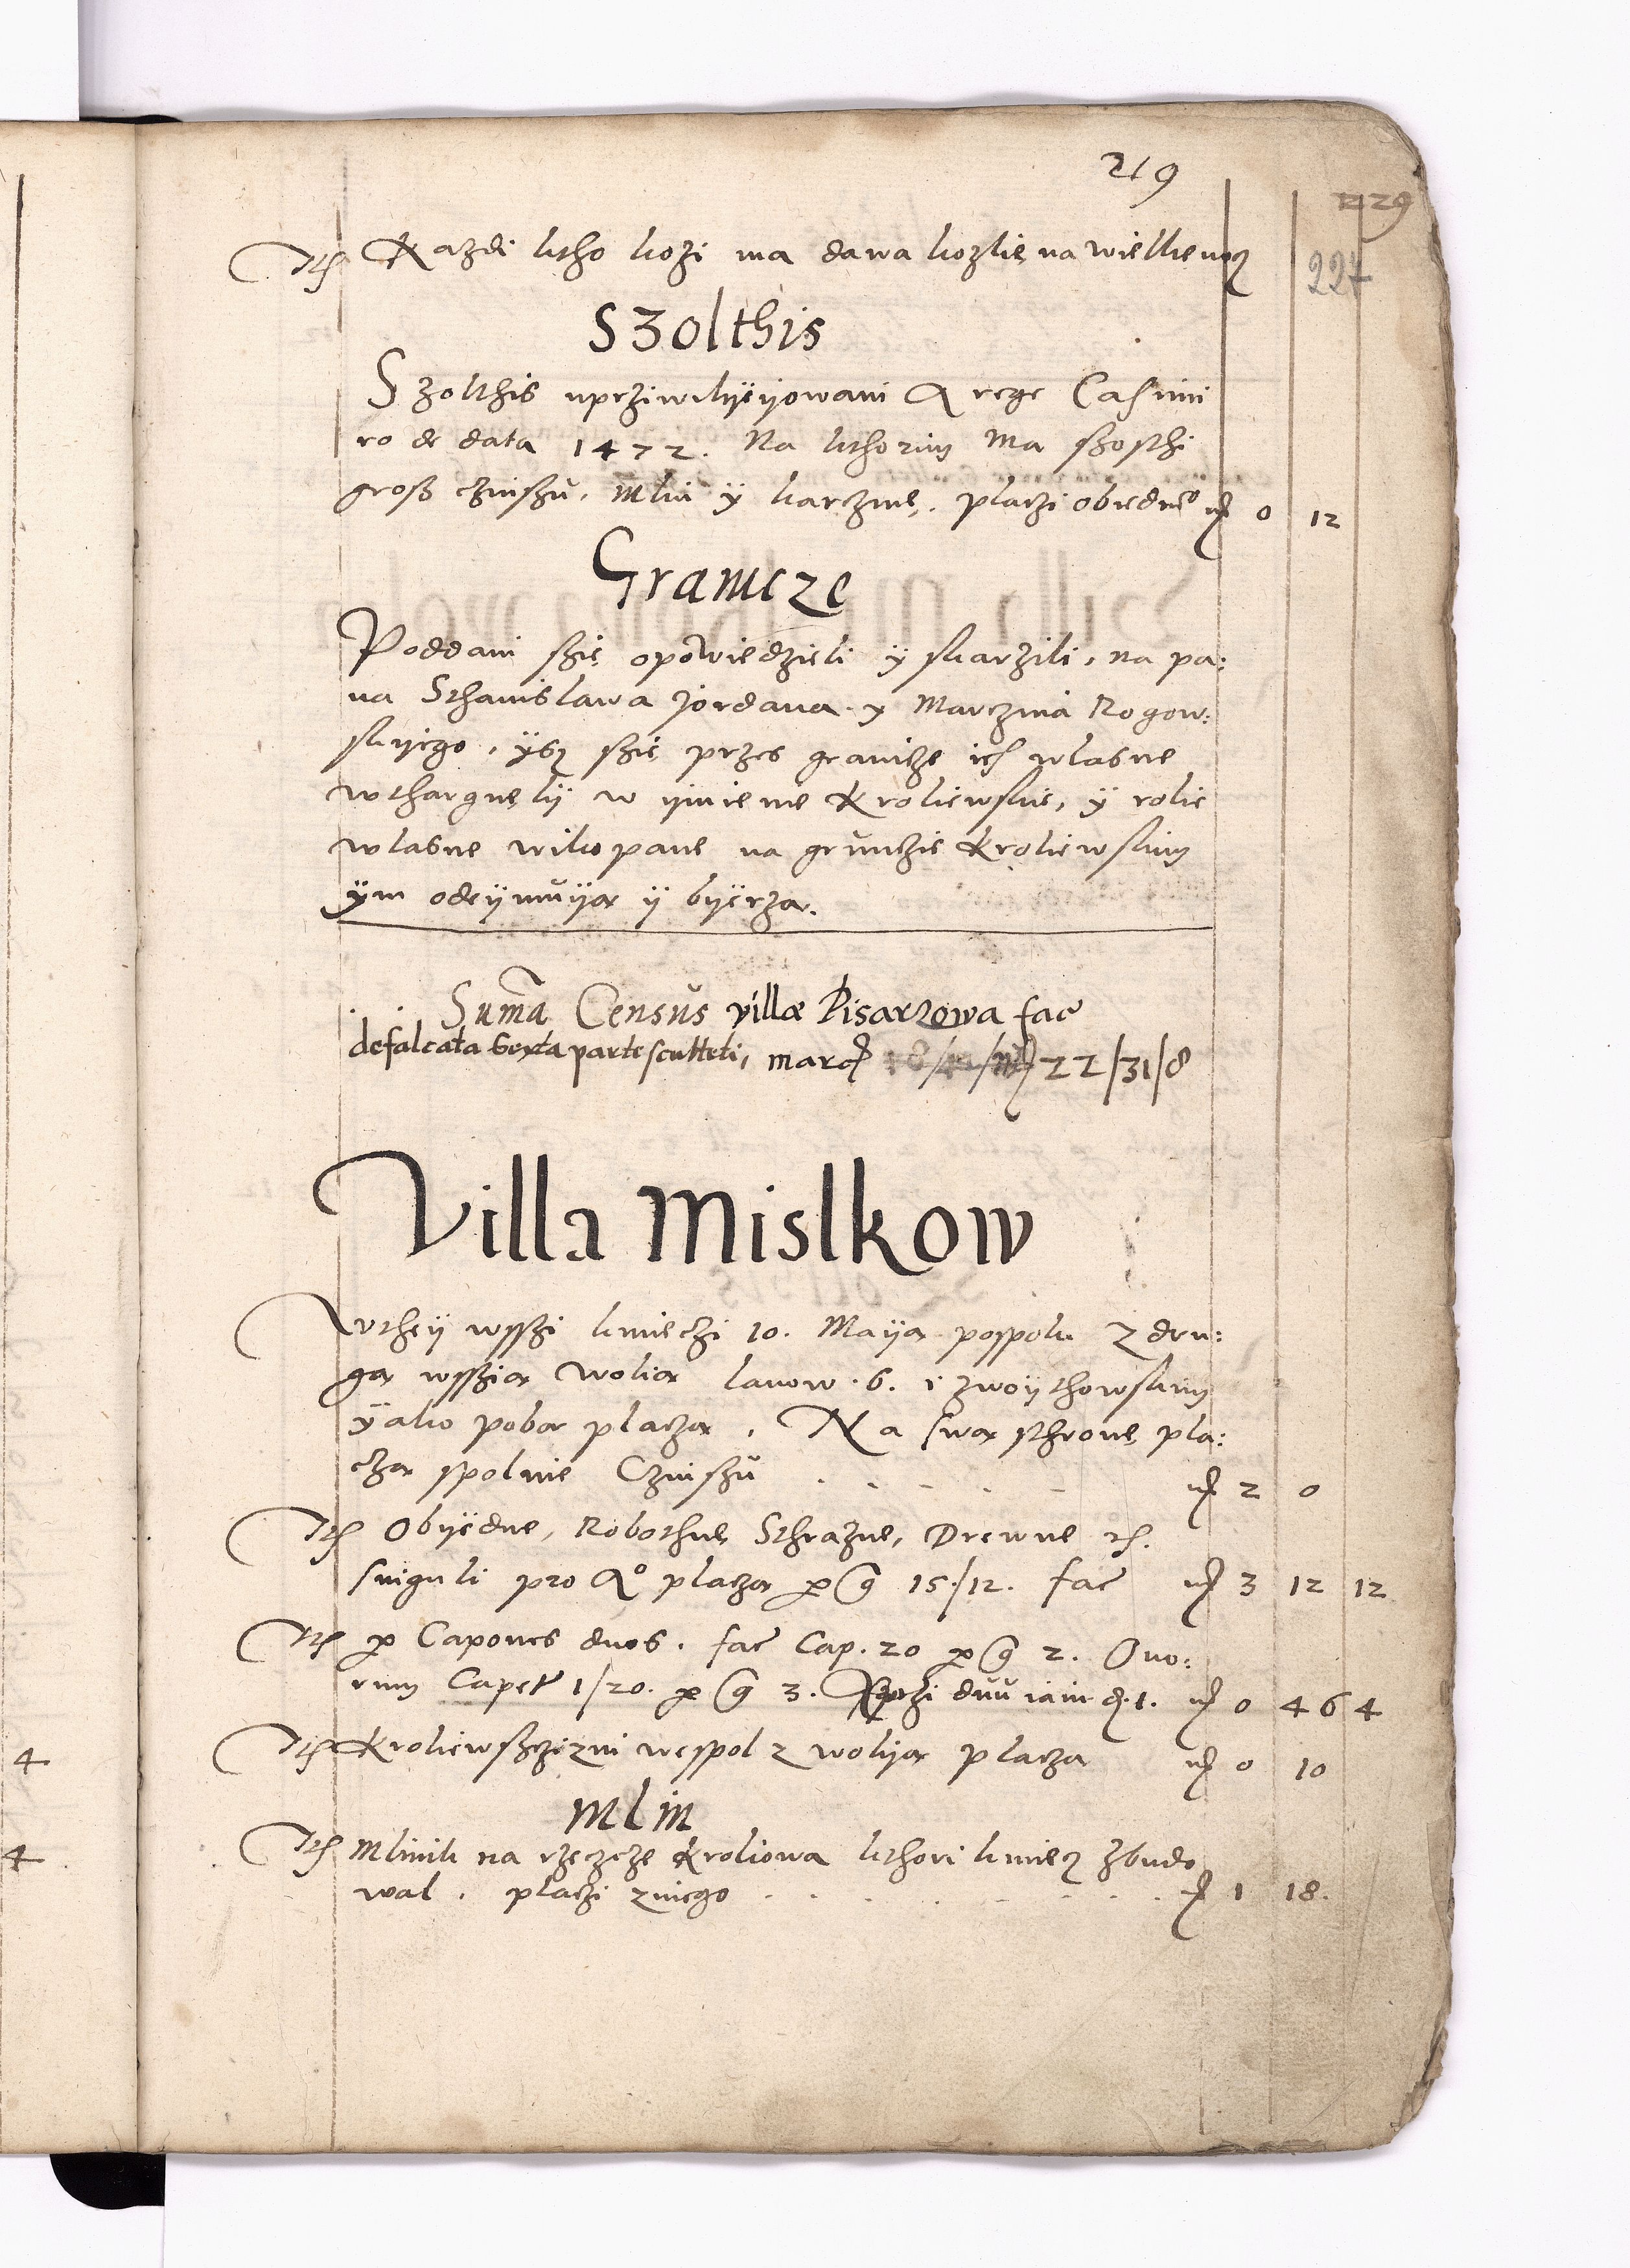 219
229
227
Itē Kazdi ktho kozi ma dawa kozlię na wielkenocz
Szolthis
Szolthis uprziwilyeyowani a rege Casimi
ro de data 1472. Na kthorim Ma szosthi
grosz czinszu, mlin y karczmę, placzi obiednᵉ mᶜ 0 12
Granicze
Poddani szię opowiedzieli y skarzili, na pa:
na Sthanislawa Jordana y Marczina Rogow:
skyego, ysz szię przes granicze ich wlasne
wthargnęly w ymiene Kroliewskie, y rolie
wlasne wikopane na grunczie Kroliewskim
ym odeymuya y byerza.
Suma Census villæ Pisarzowa fac
defalcata sexta parte sculteti, marc 22/31/8
Villa Mislkow
W they wsszi kmieczi 10. Maya pospolu z dru:
ga wsszia Wolia lanow .6. i zwoythowskim
yako poba placza, Na swa sthronę pla:
cza spolnie Czinszu . . . . . mᶜ 2 0
Itē Obyedne, Robothne, Sthrazne, Drewne etc.
singuli pro aᵒ placza per g 15/12. fac mᶜ 3 12 12
Itē per Capones duos. fac Cap. 20 per g 2. Ovo:
rum Capet 1/20. per g 3. duu iain d.1. mᶜ 0 46 4
Itē Kroliewsczizni wespol z wolya placza mᶜ 0 10
Mlin
Itē Mlinik na rzeczcze Kroliowa kthori kmiecz zbudo
wal. placzi zniego . . . . . . . mᶜ 1 18.
4
4